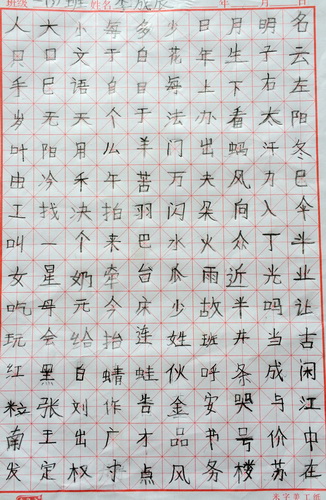 班级 一(1)班 姓名 年 月 日
人大小每多少日月明名
口口文干白花年生子云
手巳语自目每上下右左
岁无天个于法办看太阳
叶阳用么羊门出蚂汗冬
由冷禾午苦万夫风力巳
工找决拍羽闪朵向入伞
叫一个来巴水火众丁斗
女星奶牵台瓜雨近光业
吃母元今床少故半吗让
玩会给抬连姓班井当古
红黑白蜻蛙伙呼条成闲
粒张刘作告金安哭与江
南王出广才品书号价中
发定权寸点风务楼苏在
米字第丁